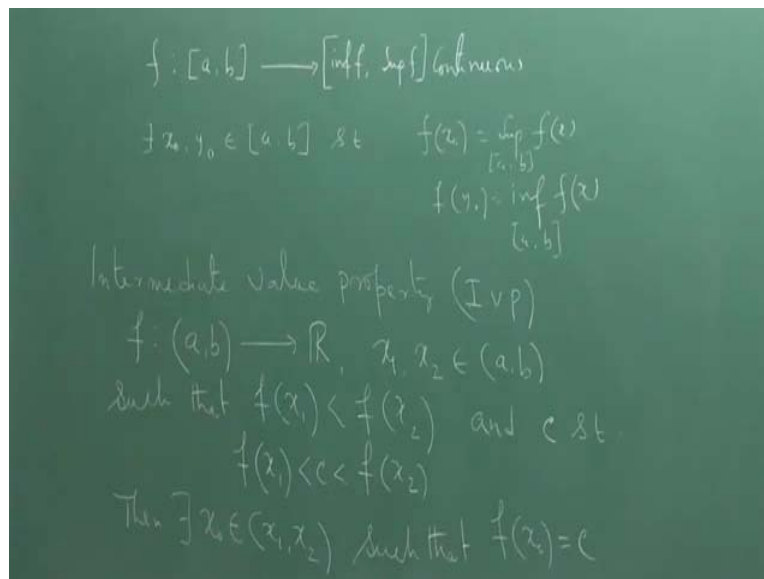 f : [a, b] ⟶ [inf f, Sup f] Continuous
∃ x₀, y₀ ∈ [a, b] st f(x₀) = Sup f(x)
[a, b]
f(y₀) = inf f(x)
[a, b]
Intermediate value property (IVP)
f : (a, b) ⟶ ℝ, x₁, x₂ ∈ (a, b)
such that f(x₁) < f(x₂) and c st.
f(x₁) < c < f(x₂)
Then ∃ x₀ ∈ (x₁, x₂) such that f(x₀) = c